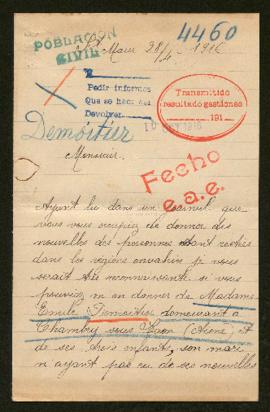 4460
POBLACION
CIVIL
Maur 28/4 - 1916
Pedir informes
Que se hace así
Devolver
Transmitido
resultado gestiones
191
1916
Demoitier
Monsieur.
Fecho
e.a.e.
Ayant lu dans un journal que
vous vous occupiez de donner des
nouvelles des personnes étant restées
dans les régions envahies je vous
serait très reconnaissante si vous
pouviez m en donner de Madame
Emile Demoitier demeurant à
Chambry sous Laon (Aisne) et
de ses trois enfant, son mari
n ayant pas eu de ses nouvelles